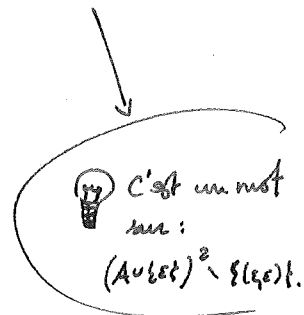 C'est un mot
sur :
(A∪{ε})² \ {(ε,ε)}.